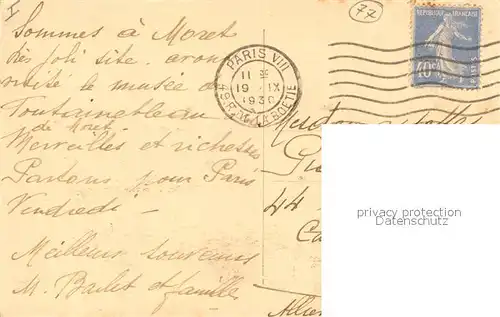 I
77
Sommes à Moret
très joli site. avons
visité le musée de
Fontainebleau
de Moret
Merveilles et richesses
Partons pour Paris
Vendredi -
Meilleurs souvenirs
M. Bailet et famille
PARIS VIII
11 H
19 - IX
1930
49 R. DE LA BOETIE
REPUBLIQUE FRANÇAISE
40c
POSTES
44
privacy protection
Datenschutz